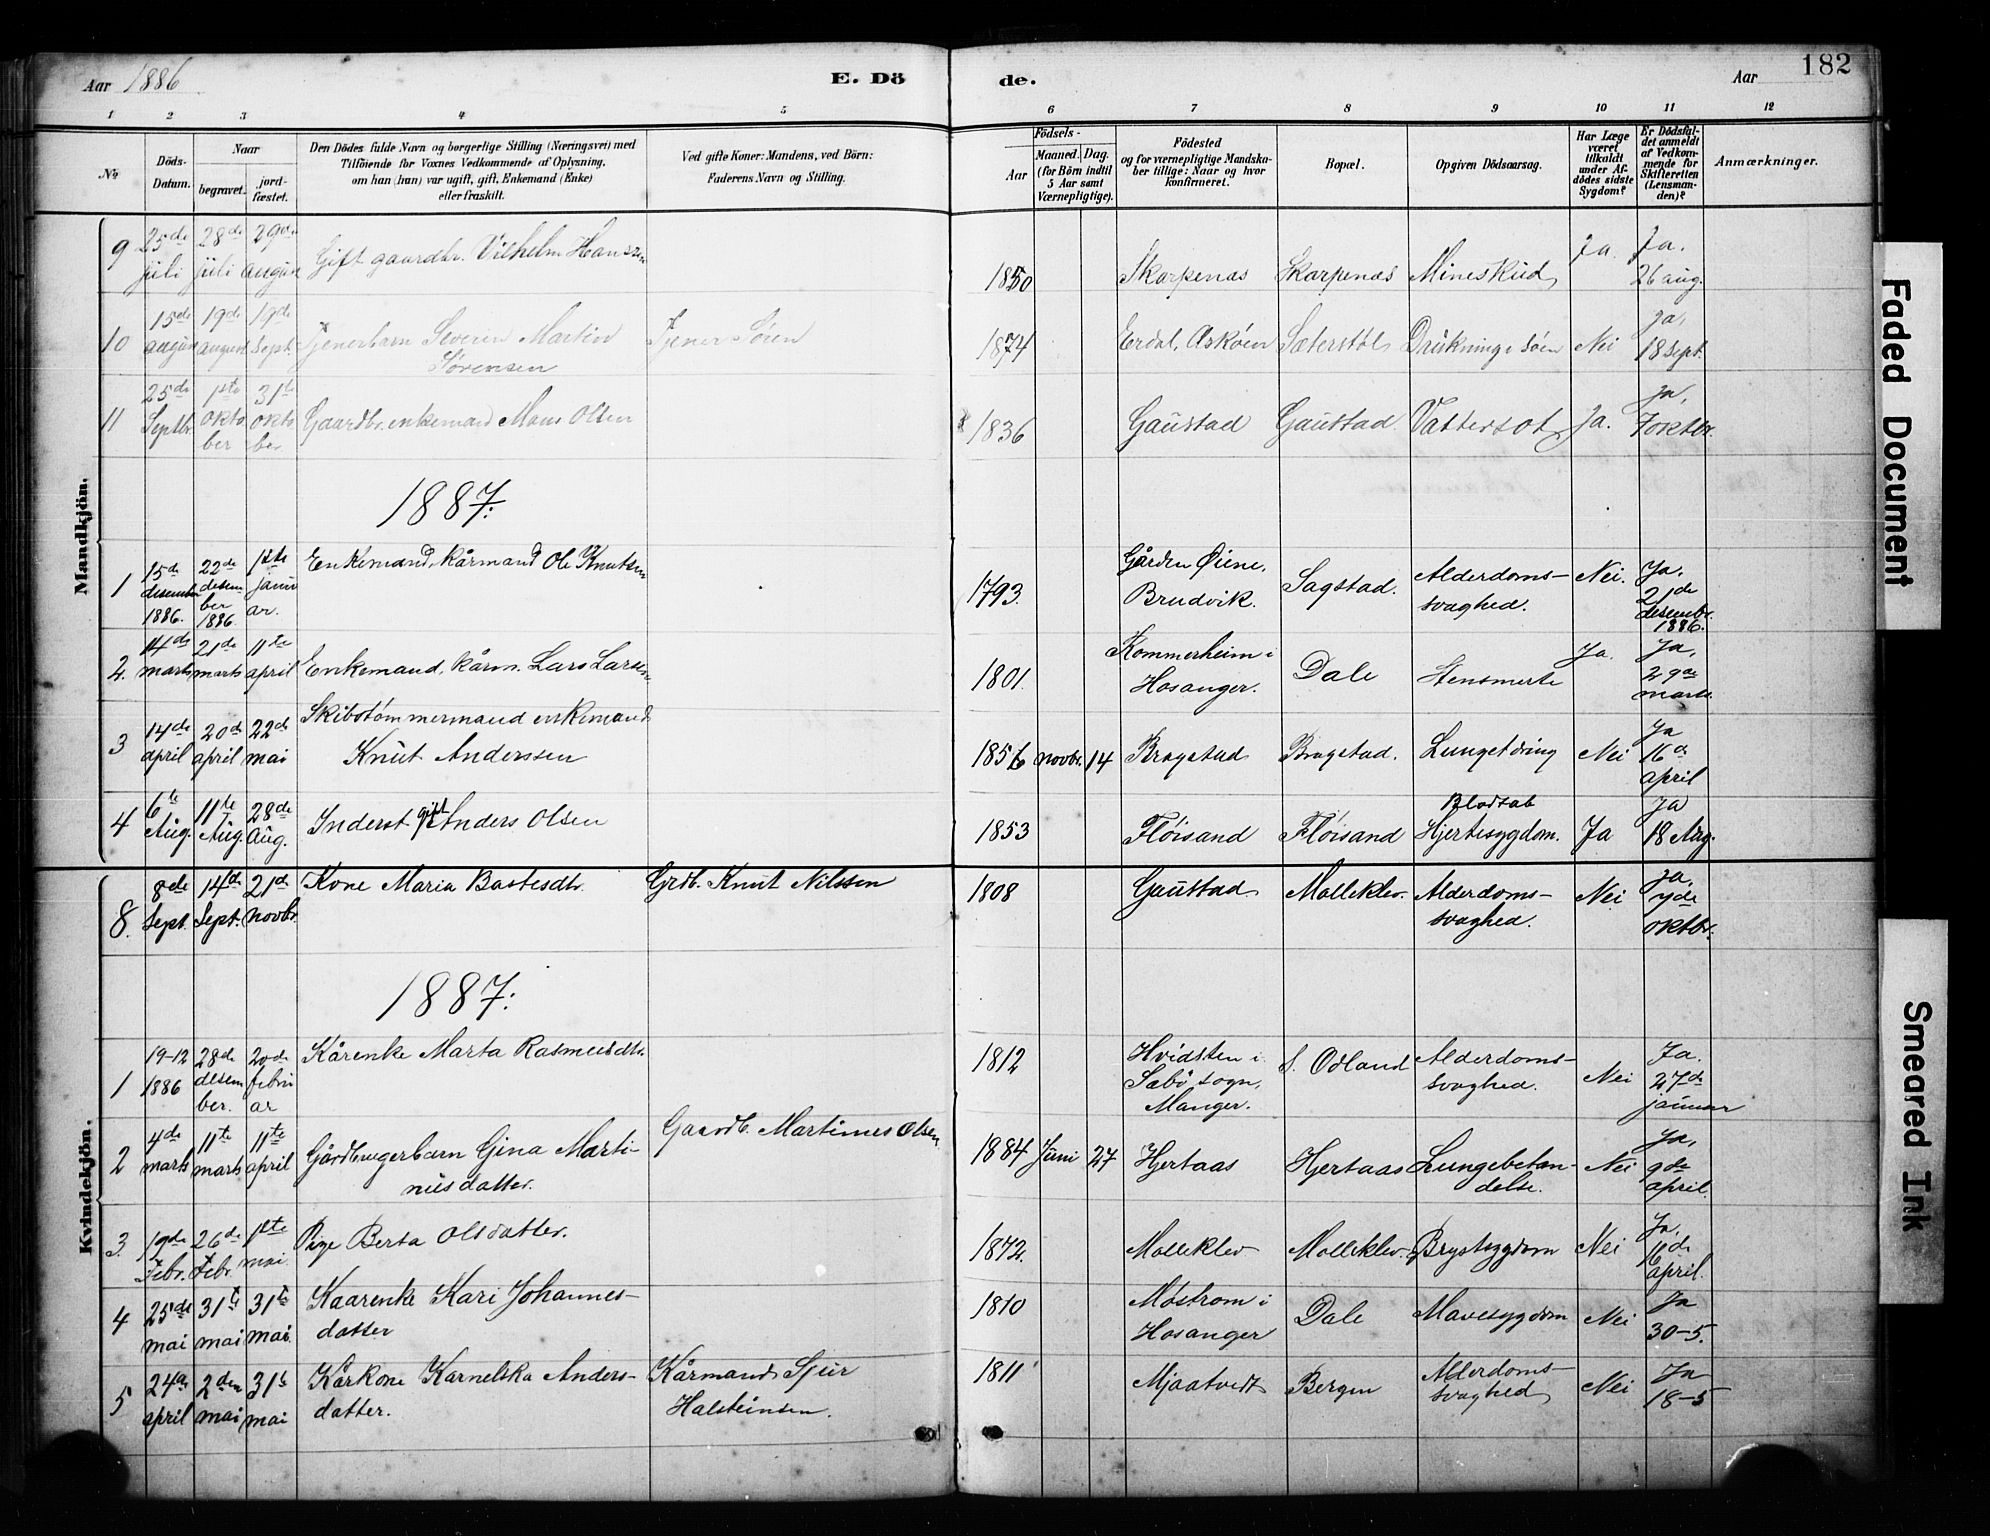 182
Aar 1886
E. Dö
de.
Aar
1 2 3 4 5 6 7 8 9 10 11 12
No
Döds-Datum.
Naar
begravet.
jord-fæstet.
Den Dödes fulde Navn og borgerlige Stilling (Næringsvei) med
Tilföiende for Voxnes Vedkommende af Oplysning,
om han (hun) var ugift, gift, Enkemand (Enke)
eller fraskilt.
Ved gifte Koner: Mandens, ved Börn:
Faderens Navn og Stilling.
Födsels-
Aar
Maaned. Dag.
(for Börn indtil
5 Aar samt
Værnepligtige).
Födested
og for værnepligtige Mandska-
ber tillige: Naar og hvor
konfirmeret.
Bopæl.
Opgiven Dödsaarsag.
Har Læge
været
tilkaldt
under Af-
dödes sidste
Sygdom?
Er Dödsfal-
det anmeldt
af Vedkom-
mende for
Skifteretten
(Lensman-
den)?
Anmærkninger.
Mandkjön.
9 25de juli 28de juli 29de august Gift gaardbr. Vilhelm Hanssen 1850 Skarpenæs Skarpenæs Mineskud Ja. Ja. 26 aug.
10 15de august 19de august 19de sept. Tjenerbarn Severin Martin Sørensen Tjener Søren 1874 Erdal, Askøen Sæterstøl Drukning i søen Nei Ja, 18 sept.
11 25de Septbr. 1ste oktober 31te oktober Gaardbr. enkemand Mons Olsen 1836 Gaustad Gaustad Vattersot Ja. Ja, 7 oktbr.
1887:
1 15de desember 1886. 22de desember 1886 1ste januar. Enkemand, kårmand Ole Knutsen 1793. Gården Øiene, Brudvik. Sagstad. Alderdoms-svaghed. Nei. Ja, 21de desembr. 1886.
2. 14de marts 21de marts 11te april Enkemand, kårm. Lars Larsen 1801. Kommerheim i Hosanger. Dale Stensmerte Ja. Ja, 29de marts.
3 14de april 20de april 22de mai Skibstømmermand enkemand Knut Anderssen 1856 novbr. 14 Bragstad Bragstad. Lungetæring Nei Ja 16de april
4 6te Aug. 11te Aug. 28de Aug. Inderst gift Anders Olsen 1853 Fløisand Fløisand Blodtab Hjertesygdom. Ja Ja 18 Aug.
Kvindekjön.
8. 8de Sept. 14de Sept. 21de novbr. Kone Maria Bastesdtr. Grdb. Knut Nilssen 1808 Gaustad Molleklev. Alderdoms-svaghed. Nei Ja, 7de oktbr.
1887:
1 19-12 1886 28de desember. 20de februar Kårenke Marta Rasmusdtr. 1812 Hvidsten i Sæbø sogn, Manger. S. Odland Alderdoms-svaghed. Nei Ja. 27de januar
2 4de marts 11te marts 11te april Gårdbrugerbarn Gina Martinusdatter. Gaardb. Martinus Olsen 1884 Juni 27 Hjertaas Hjertaas Lungebetændelse. Nei Ja, 9de april.
3. 19de Febr. 26de Febr. 1ste mai. Pige Berta Olsdatter. 1872. Molleklev Molleklev. Brystsygdom Nei Ja, april.
4 25de mai 31te mai 31te mai. Kaarenke Kari Johannes-datter 1810 Mostrom i Hosanger Dale Mavesygdom Nei Ja 30-5.
5 24de april 2den mai 31te mai Kårkone Karnelska Anders-datter. Kårmand Sjur Halsteinsen. 1811 Mjaatvedt Bergen Alderdoms-svaghed Nei Ja 18-5
Faded Document
Smeared Ink